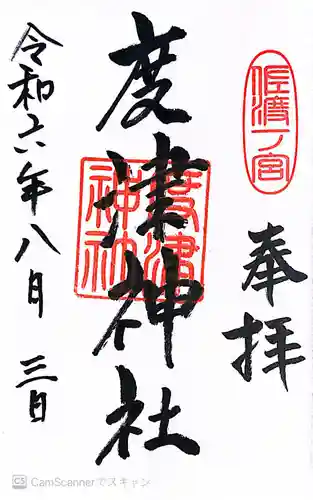 佐渡一ノ宮
奉拝
度津神社
度津
神社
令和六年八月三日
CS CamScannerでスキャン